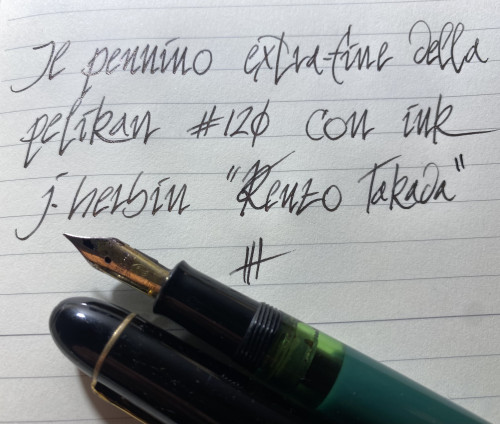 Il pennino extra-fine della
pelikan #120 con ink
j. herbin "Kenzo Takada"